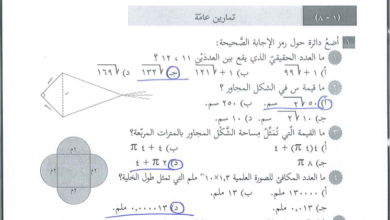 (١ - ٨) تمارين عامّة
١ أضعُ دائرة حول رمز الإجابة الصَّحيحة:
١ ما العدد الحقيقيّ الذي يقع بين العددَيْن ١١ ، ١٢ ؟
أ) ١ + √٩٩ ب) ١ + √١٢١ جـ) √١٣٢ د) √١٦٩
٢ ما قيمة س في الشكل المجاور ؟
أ) ٥٠√٢ سم. ب) ٢٥٠ سم.
جـ) ١٠√٢ سم. د) ١٠ سم.
٣ ما القيمة الّتي تُمَثِّلُ مِساحة الشَّكْل المجاور بالمترات المربَّعة؟
أ) ٤(٤ + π) ب) ٤ + ٤ π
جـ) ٨ π د) ٢ π + ٤
٢م ٢م
٢م ٢م
٤ ما العدد المكافئ للصورة العلمية ١,٣×١٠ ملم التي تمثل طول الخلية؟
أ) ١٣٠٠٠٠ ملم. ب) ١٣ ملم.
جـ) ٠,١٣ ملم. د) ٠,٠٠٠٠١٣ ملم.